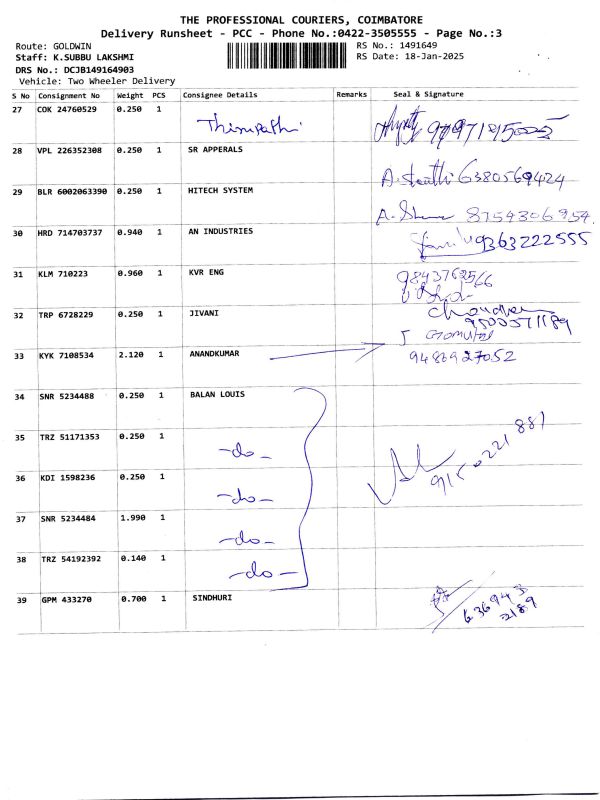 THE PROFESSIONAL COURIERS, COIMBATORE
Delivery Runsheet - PCC - Phone No.:0422-3505555 - Page No.:3
Route: GOLDWIN RS No.: 1491649
Staff: K.SUBBU LAKSHMI RS Date: 18-Jan-2025
DRS No.: DCJB149164903
Vehicle: Two Wheeler Delivery
S No Consignment No Weight PCS Consignee Details Remarks Seal & Signature
27 COK 24760529 0.250 1 Thirupathi
28 VPL 226352308 0.250 1 SR APPERALS 6380569424
29 BLR 6002063390 0.250 1 HITECH SYSTEM 8754306954
30 HRD 714703737 0.940 1 AN INDUSTRIES 9363222555
31 KLM 710223 0.960 1 KVR ENG 9843762566
32 TRP 6728229 0.250 1 JIVANI
33 KYK 7108534 2.120 1 ANANDKUMAR 9486927052
34 SNR 5234488 0.250 1 BALAN LOUIS
35 TRZ 51171353 0.250 1 -do-
36 KDI 1598236 0.250 1 -do- 9150221881
37 SNR 5234484 1.990 1 -do-
38 TRZ 54192392 0.140 1 -do-
39 GPM 433270 0.700 1 SINDHURI 636943
2189